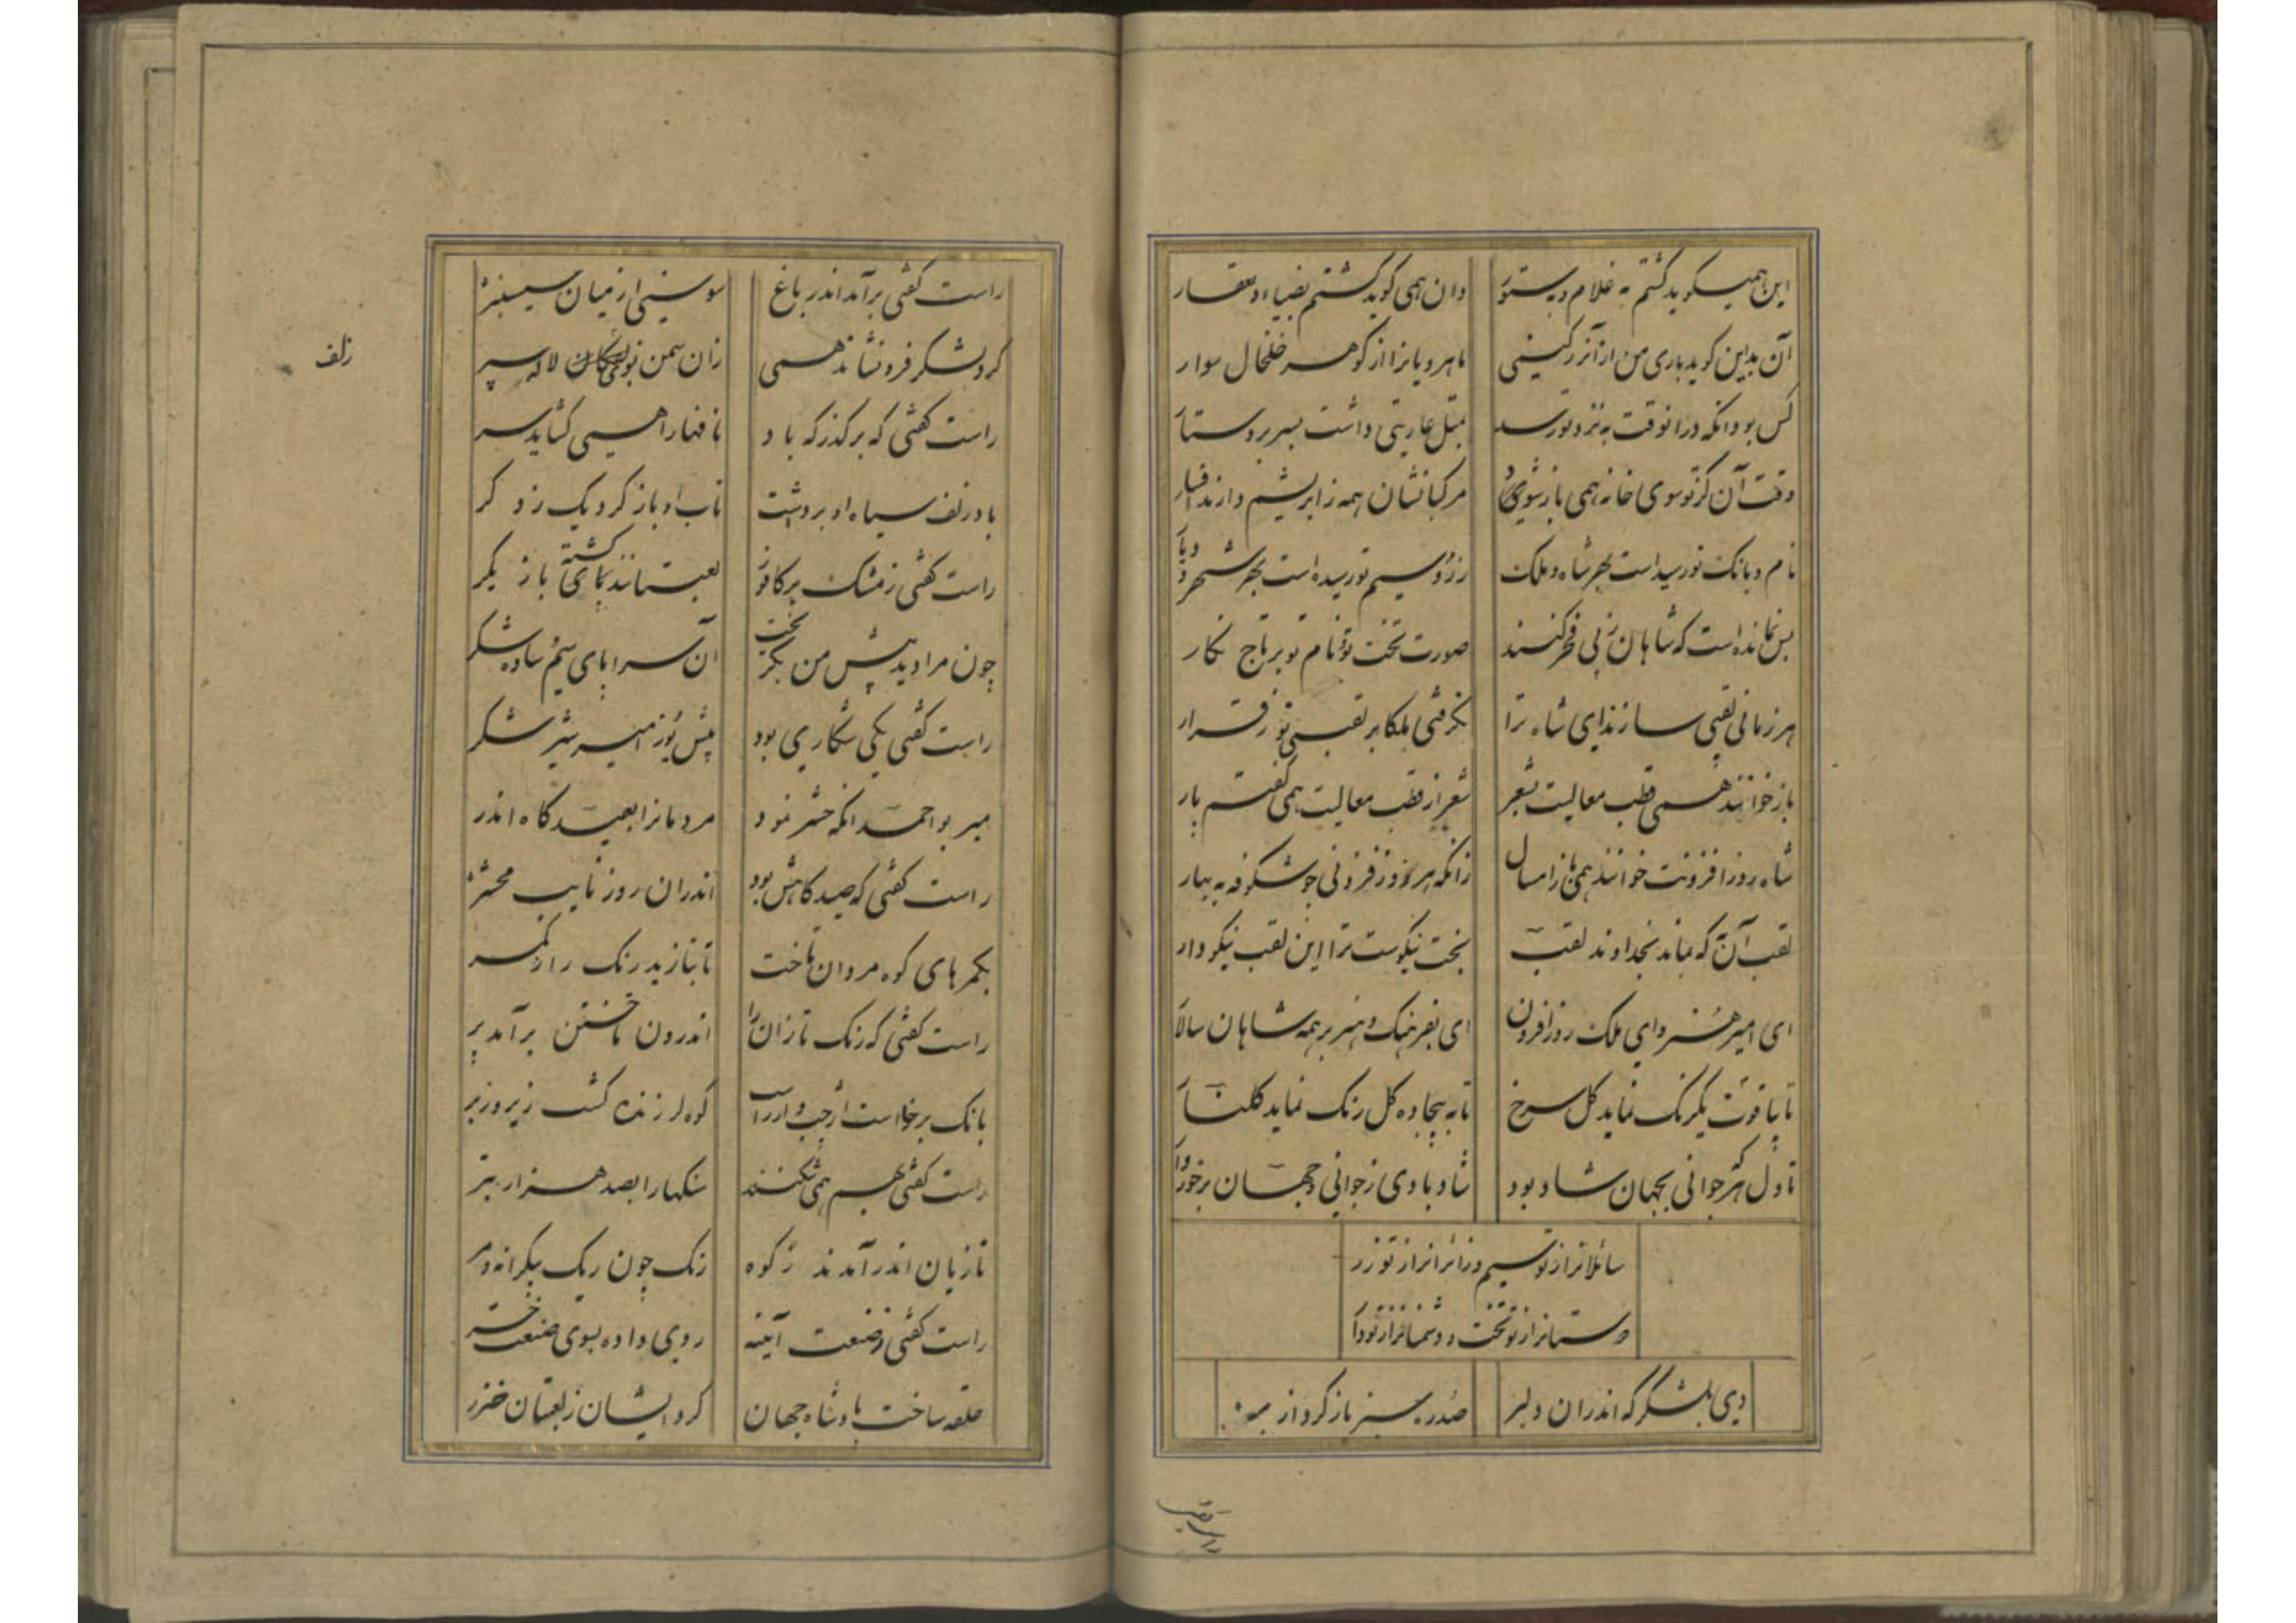 این همیگوید گشتم به غلام و بستور وان همی گوید گشتم بضیاء و عقار
آن بدین گوید باری من از آن زر کنمی ماهرویانرا از گوهر خلخال سوار
کس بود آنکه در آنوقت به نزد تو رسد بمثل عاریتی داشت بسر بر دستار
وقت آن کز تو سوی خانه همی باز شوی مرکبانشان همه ز ابریشم دارند افسار
نام و بانگ تو رسیده است بهر شاه و ملک زر و سیم تو رسیده است بهر شهر و دیار
بس نمانده است که شاهان ز پی فخر کنند صورت تخت تو و نام تو بر تاج نگار
هر زمانی لقبی سازند ای شاه ترا نگرفتی بلکا بر لقبی تو ز قرار
باز خوانند همی قطب معالیت بشعر شعر از قطب معالیت همی گفتم پار
شاه روز افزونت خوانند همی باز امسال زانکه هر روز فزونی چو شکوفه به بهار
لقب آنست که ماند بخداوند لقب بخت نیکوست ترا این لقب نیکو دار
ای امیر هنر و ای ملک روز افزون ای بفرهنگ و هنر بر همه شاهان سالار
تا بیاقوت یکرنگ نماید گل سرخ تا به بیجاده گل رنگ نماید گلنار
تا دل هر جوانی بجهان شاد بود شاد بادی ز جوانی و جهان برخوردار
سائلانرا ز تو سیم و زائرانرا ز تو زر
دوستانرا ز تو تخت و دشمنانرا ز تو دار
دی بلشکر که اندران دلبر صدره سبز باز کرد از بر
راست گفتی
راست گفتی برآمد اندر باغ سوسنی از میان سیسنبر
گرد لشکر فرو نشاند همی زان سمن بوی لاله سپر
زلف
راست گفتی که بر گذرگه باد نافهارا همی گشاید سر
باد زلف سیاه او برداشت تاب او باز کرد یک ز دگر
راست گفتی ز مشک بر کافور لعبتانند گشته بازیگر
چون مرا دید پیش من بگریخت آن سراپای سیم ساده شکر
راست گفتی یکی شکاری بود پیش یوز امیر شیر شکر
میر بو احمد آنکه حشر نمود مردمانرا بصیدگاه اندر
راست گفتی که صیدگاهش بود اندران روز نایب محشر
بکمرهای کوه مردان تاخت تا بتازید رنگ را ز کمر
راست گفتی که رنگ تازانرا اندرون تاختن برآمد پر
بانگ برخاست از چپ و از راست کوه لرزنده گشت زیر و زبر
راست گفتی بهم همی شکنند سنگهارا بصد هزار تبر
تازیان اندر آمدند ز کوه رنگ چون ریگ بیکرانه و مر
راست گفتی ز صنعت آینه روی داده بسوی صنعت خر
حلقه ساخت پادشاه جهان گرد ایشان ز لعبتان خزر